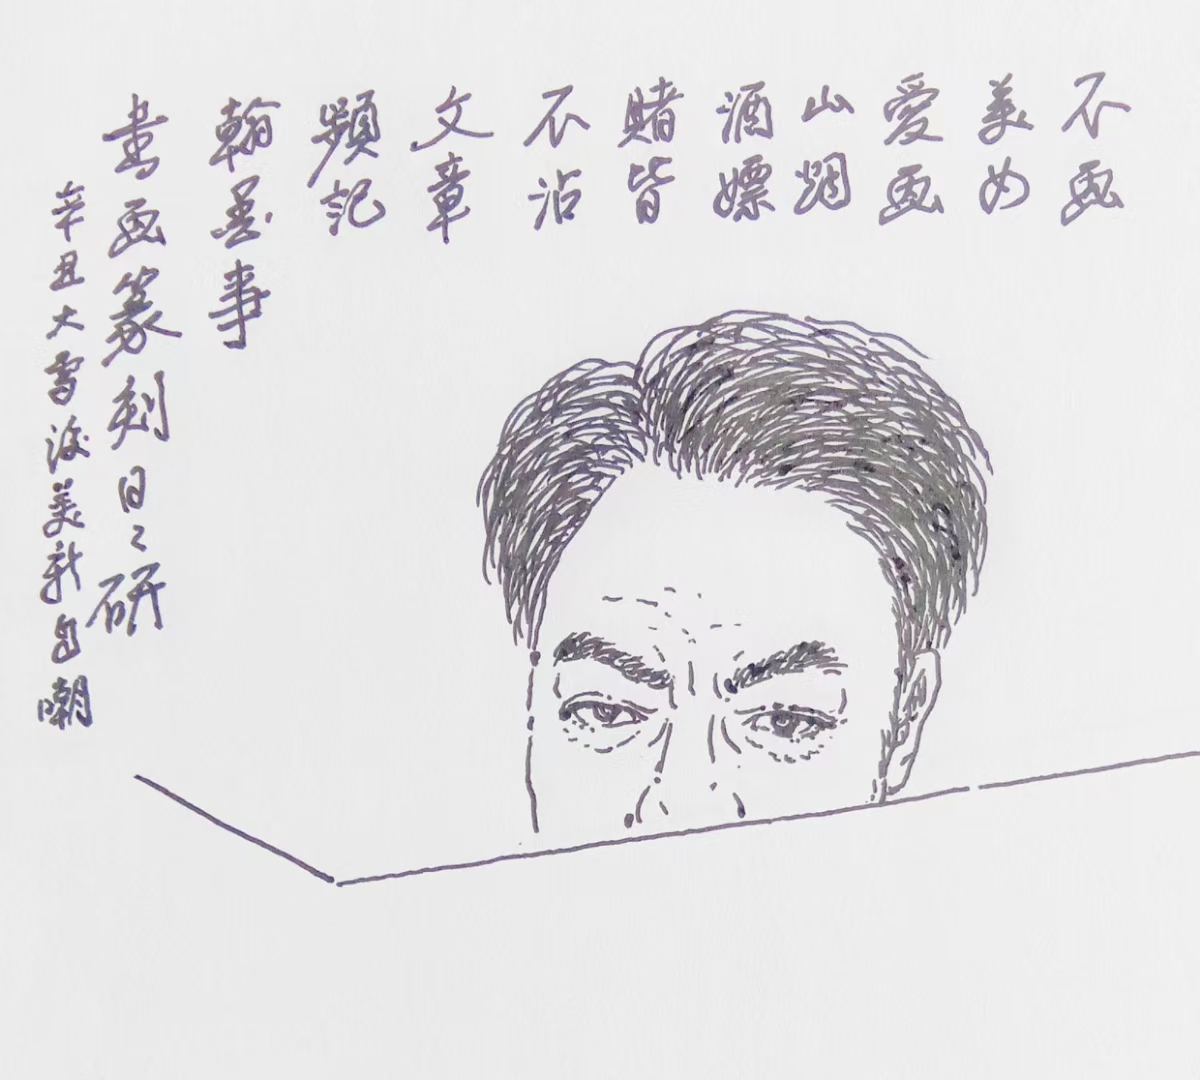 不画
美女
爱画
山烟
酒嫖
賭皆
不沾
文章
頻記
翰墨事
書画篆刻日々研
辛丑大雪新自嘲